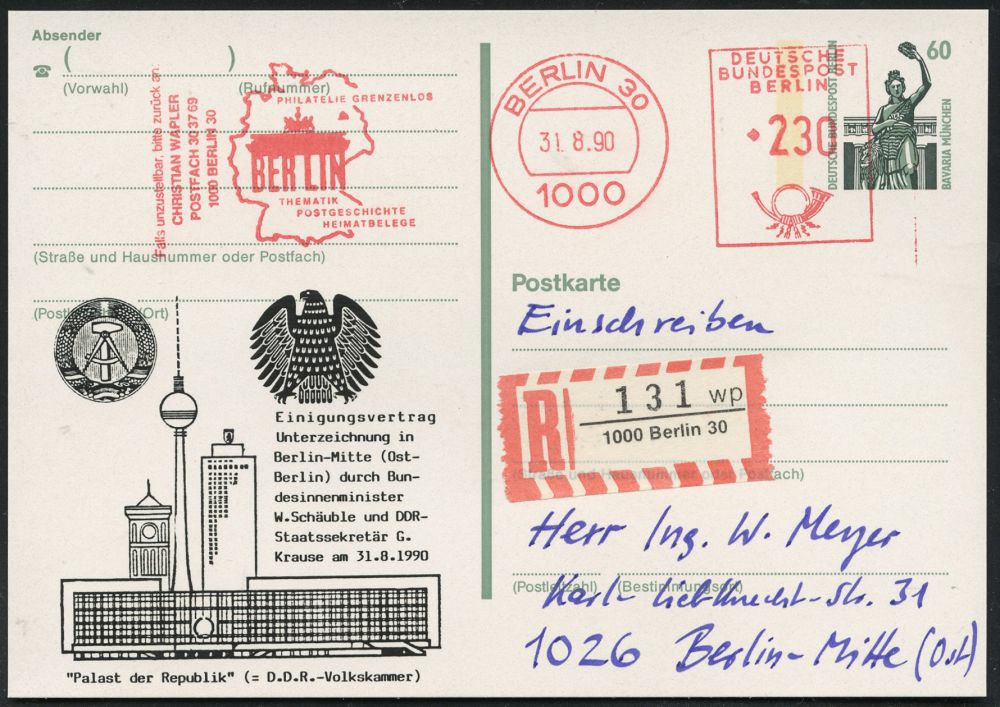 Absender
( )
(Vorwahl) (Rufnummer)
Falls unzustellbar, bitte zurück an:
CHRISTIAN WAPLER
POSTFACH 30 37 69
1000 BERLIN 30
PHILATELIE GRENZENLOS
BERLIN
THEMATIK
POSTGESCHICHTE
HEIMATBELEGE
(Straße und Hausnummer oder Postfach)
(Ort)
BERLIN 30
31.8.90
1000
DEUTSCHE
BUNDESPOST
BERLIN
230
60
DEUTSCHE BUNDESPOST BERLIN
BAVARIA MÜNCHEN
Einigungsvertrag
Unterzeichnung in
Berlin-Mitte (Ost-
Berlin) durch Bun-
desinnenminister
W.Schäuble und DDR-
Staatssekretär G.
Krause am 31.8.1990
"Palast der Republik" (= D.D.R.-Volkskammer)
Postkarte
Einschreiben
R
131 wp
1000 Berlin 30
(Straße und Hausnummer oder Postfach)
Herr Ing. W. Meyer
(Postleitzahl) (Bestimmungsort)
Karl-Liebknecht-Str. 31
1026 Berlin-Mitte (Ost)